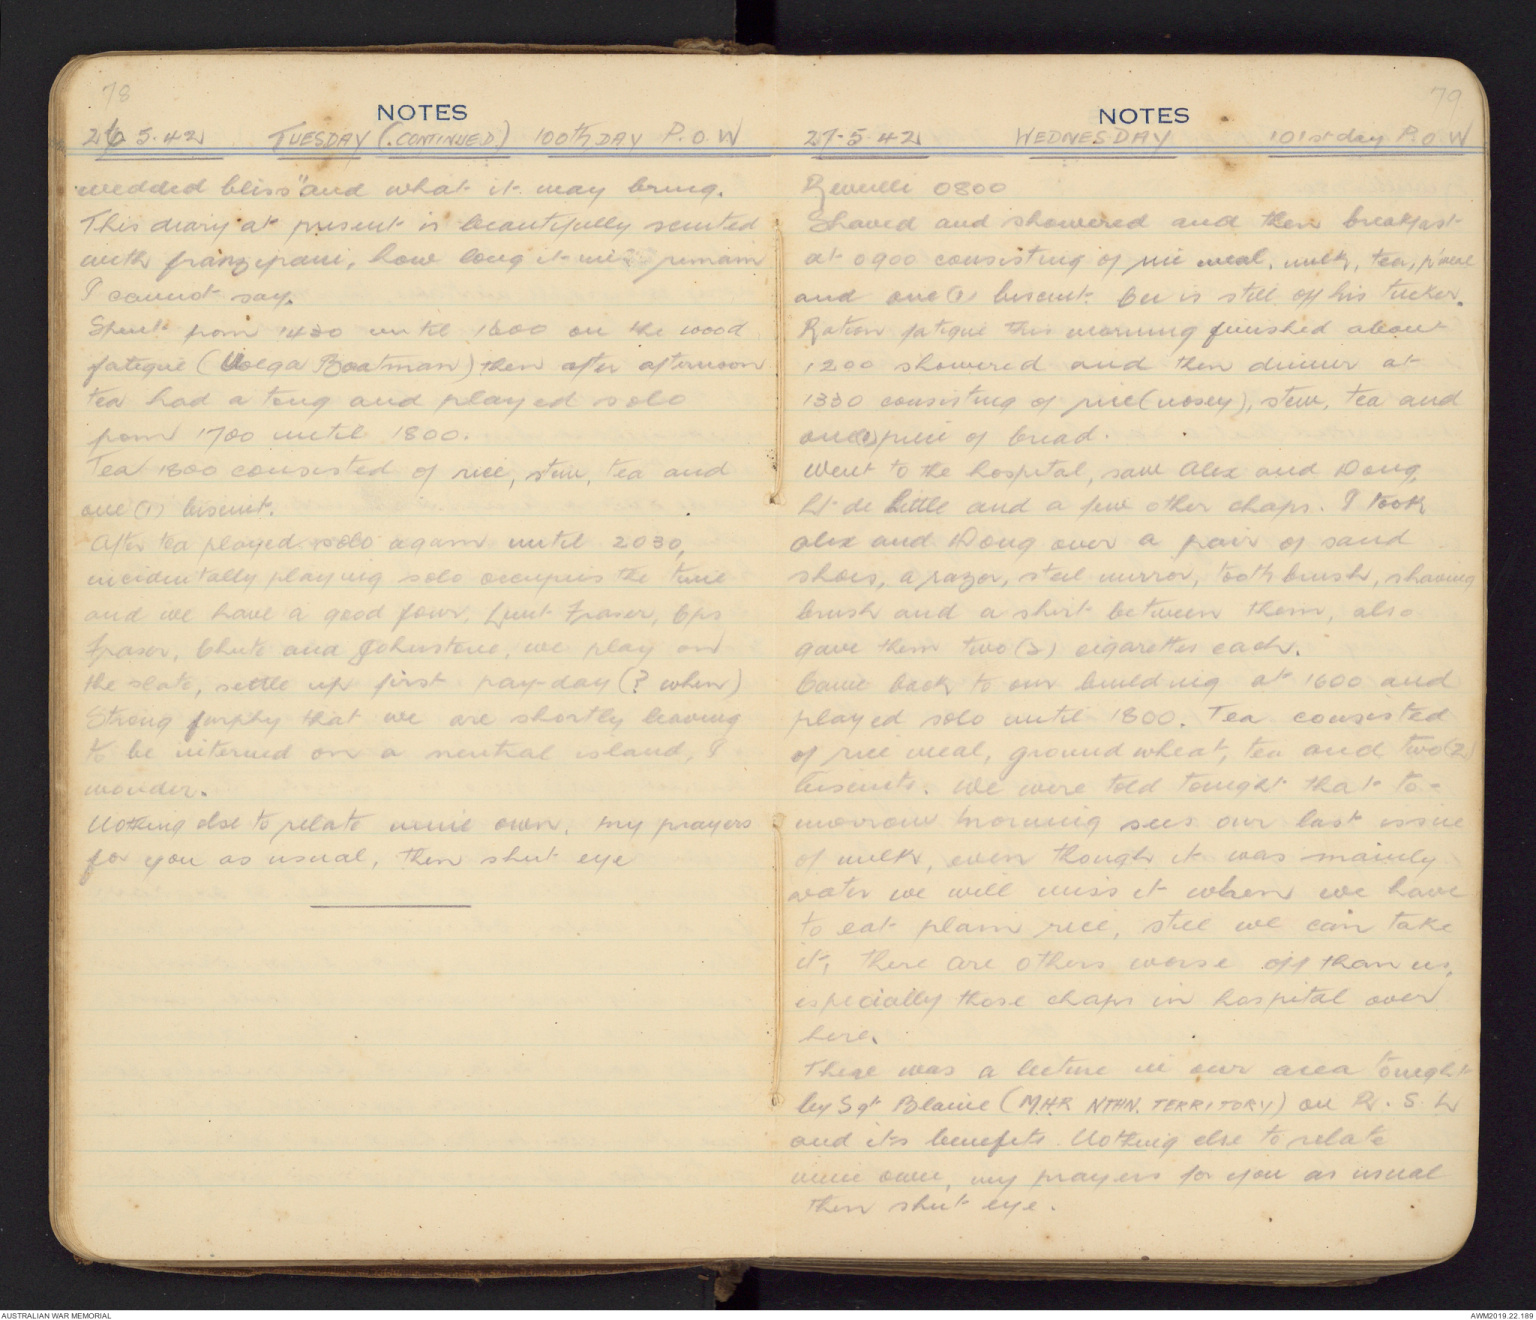 78
NOTES
26 5.42 TUESDAY (CONTINUED) 100th DAY P.O.W
wedded bliss" and what it may bring.
This diary at present is beautifully scented
with franzipani, how long it will remain
I cannot say.
Spent from 1430 until 1600 on the wood
fatigue (Volga Boatman) then after afternoon
tea had a tong and played solo
from 1700 until 1800.
Tea 1800 consisted of rice, stew, tea and
one (1) biscuit.
After tea played solo again until 2030,
incidentally playing solo occupies the time
and we have a good four, Lieut Fraser, Cps
Fraser, Chute and Johnstone, we play on
the slate, settle up first pay-day (? when)
Strong furphy that we are shortly leaving
to be interned on a neutral island, I
wonder.
Nothing else to relate mine own, my prayers
for you as usual, then shut eye
79
NOTES
27-5-42 WEDNESDAY 101st day P.O.W
Reveille 0800
Shaved and showered and then breakfast
at 0900 consisting of rice meal, milk, tea,
and one (1) biscuit. Cec is still off his tucker.
Ration fatigue this morning finished about
1200 showered and then dinner at
1330 consisting of rice (nosey), stew, tea and
one (1) piece of bread.
Went to the hospital, saw Alex and Doug,
Lt de Little and a few other chaps. I took
Alex and Doug over a pair of sand
shoes, a razor, steel mirror, tooth brush, shaving
brush and a shirt between them, also
gave them two (2) cigarettes each.
Came back to our building at 1600 and
played solo until 1800. Tea consisted
of rice meal, ground wheat, tea and two (2)
biscuits. We were told tonight that to-
morrow morning sees our last issue
of milk, even though it was mainly
water we will miss it when we have
to eat plain rice, still we can take
it, there are others worse off than us,
especially those chaps in hospital over
here.
There was a lecture in our area tonight
by Sgt Blaine (M.H.R NTHN. TERRITORY) on R. S. L
and its benefits. Nothing else to relate
mine own, my prayers for you as usual
then shut eye.
AUSTRALIAN WAR MEMORIAL
AWM2019.22.189